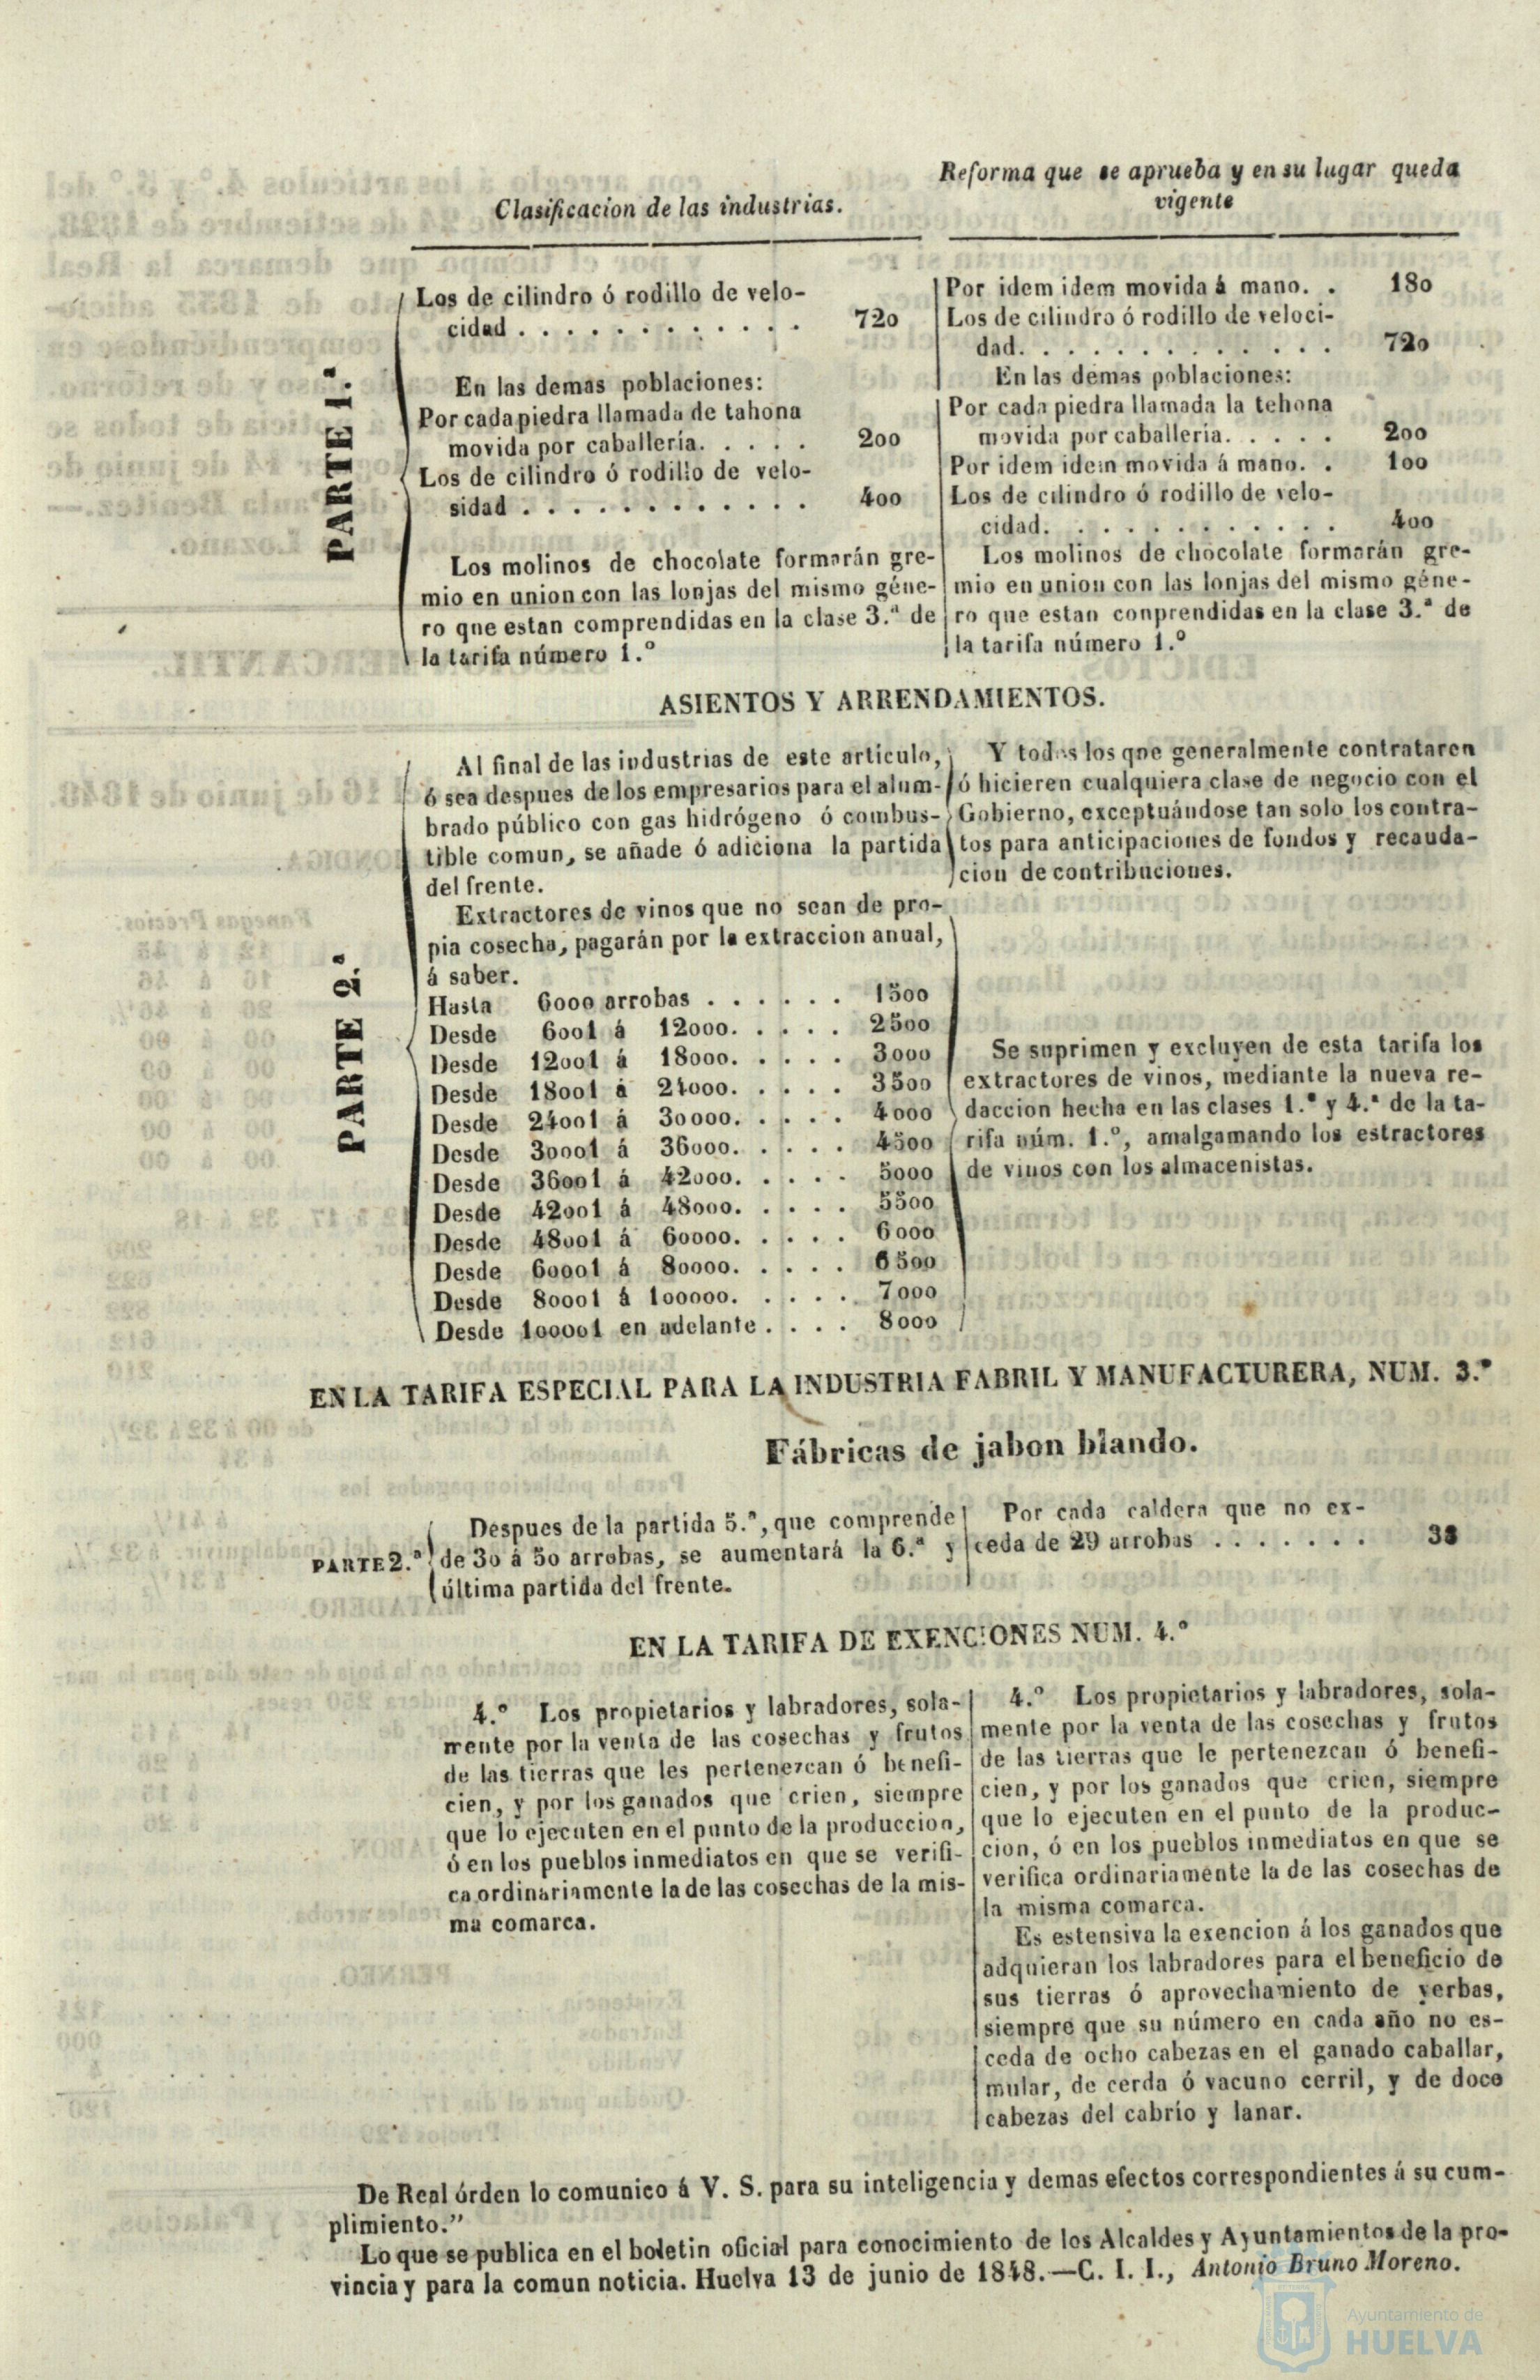 Clasificacion de las industrias.
Reforma que se aprueba y en su lugar queda
vigente
PARTE 1.ª
Los de cilindro ó rodillo de velo-
cidad . . . . . . . . . . . . 720
En las demas poblaciones:
Por cada piedra llamada de tahona
movida por caballería. . . . . 200
Los de cilindro ó rodillo de velo-
sidad . . . . . . . . . . . . 400
Los molinos de chocolate formarán gre-
mio en union con las lonjas del mismo géne-
ro que estan comprendidas en la clase 3.ª de
la tarifa número 1.º
Por idem idem movida á mano. . 180
Los de cilindro ó rodillo de veloci-
dad. . . . . . . . . . . . . 720
En las demas poblaciones:
Por cada piedra llamada la tehona
movida por caballeria. . . . . 200
Por idem idem movida á mano. . 100
Los de cilindro ó rodillo de velo-
cidad. . . . . . . . . . . . 400
Los molinos de chocolate formarán gre-
mio en union con las lonjas del mismo géne-
ro que estan conprendidas en la clase 3.ª de
la tarifa número 1.º
ASIENTOS Y ARRENDAMIENTOS.
PARTE 2.ª
Al final de las industrias de este artículo,
ó sea despues de los empresarios para el alum-
brado público con gas hidrógeno ó combus-
tible comun, se añade ó adiciona la partida
del frente.
Extractores de vinos que no sean de pro-
pia cosecha, pagarán por la extraccion anual,
á saber.
Hasta 6000 arrobas . . . . . . 1500
Desde 6001 á 12000. . . . . 2500
Desde 12001 á 18000. . . . . 3000
Desde 18001 á 24000. . . . . 3500
Desde 24001 á 30000. . . . . 4000
Desde 30001 á 36000. . . . . 4500
Desde 36001 á 42000. . . . . 5000
Desde 42001 á 48000. . . . . 5500
Desde 48001 á 60000. . . . . 6000
Desde 60001 á 80000. . . . . 6500
Desde 80001 á 100000. . . . . 7000
Desde 100001 en adelante . . . . 8000
Y todos los qne generalmente contrataren
ó hicieren cualquiera clase de negocio con el
Gobierno, exceptuándose tan solo los contra-
tos para anticipaciones de fondos y recauda-
cion de contribuciones.
Se suprimen y excluyen de esta tarifa los
extractores de vinos, mediante la nueva re-
daccion hecha en las clases 1.ª y 4.ª de la ta-
rifa núm. 1.º, amalgamando los estractores
de vinos con los almacenistas.
EN LA TARIFA ESPECIAL PARA LA INDUSTRIA FABRIL Y MANUFACTURERA, NUM. 3.º
Fábricas de jabon blando.
PARTE 2.ª
Despues de la partida 5.ª, que comprende
de 30 á 50 arrobas, se aumentará la 6.ª y
última partida del frente.
Por cada caldera que no ex-
ceda de 29 arrobas . . . . . . .
EN LA TARIFA DE EXENCIONES NUM. 4.º
4.º Los propietarios y labradores, sola-
mente por la venta de las cosechas y frutos
de las tierras que les pertenezcan ó benefi-
cien, y por los ganados que crien, siempre
que lo ejecuten en el punto de la produccion,
ó en los pueblos inmediatos en que se verifi-
ca ordinariamente la de las cosechas de la mis-
ma comarca.
4.º Los propietarios y labradores, sola-
mente por la venta de las cosechas y frutos
de las tierras que le pertenezcan ó benefi-
cien, y por los ganados que crien, siempre
que lo ejecuten en el punto de la produc-
cion, ó en los pueblos inmediatos en que se
verifica ordinariamente la de las cosechas de
la misma comarca.
Es estensiva la exencion á los ganados que
adquieran los labradores para el beneficio de
sus tierras ó aprovechamiento de yerbas,
siempre que su número en cada año no es-
ceda de ocho cabezas en el ganado caballar,
mular, de cerda ó vacuno cerril, y de doce
cabezas del cabrío y lanar.
De Real órden lo comunico á V. S. para su inteligencia y demas efectos correspondientes á su cum-
plimiento.”
Lo que se publica en el boletin oficial para conocimiento de los Alcaldes y Ayuntamientos de la pro-
vincia y para la comun noticia. Huelva 13 de junio de 1848.—C. I. I., Antonio Bruno Moreno.
Ayuntamiento de
HUELVA